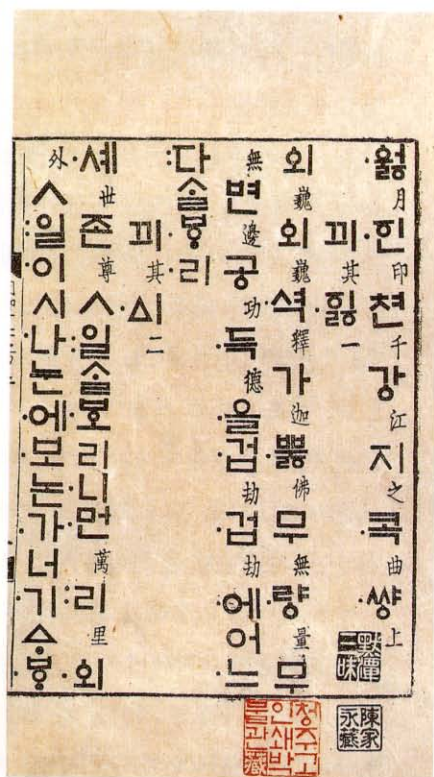 ·ᅌᅯᇙ月·ᅙᅵᆫ印쳔千강江지之·콕曲·썅上
끠其·ᅙᅵᇙ一
외巍외巍·셕釋가迦·뿛佛무無량量무
無변邊공功·득德을·겁劫·겁劫에어느
:다ᄉᆞᆯᄫᆞ·리
끠其·ᅀᅵ二
·셰世존尊ㅅ:일ᄉᆞᆯᄫᅩ리니·먼萬:리里·외
外ㅅ:일이시나·눈에보논·가너·기ᅀᆞᄫᆞ
默潭三昧
陳家永藏
청주고인쇄박물관藏